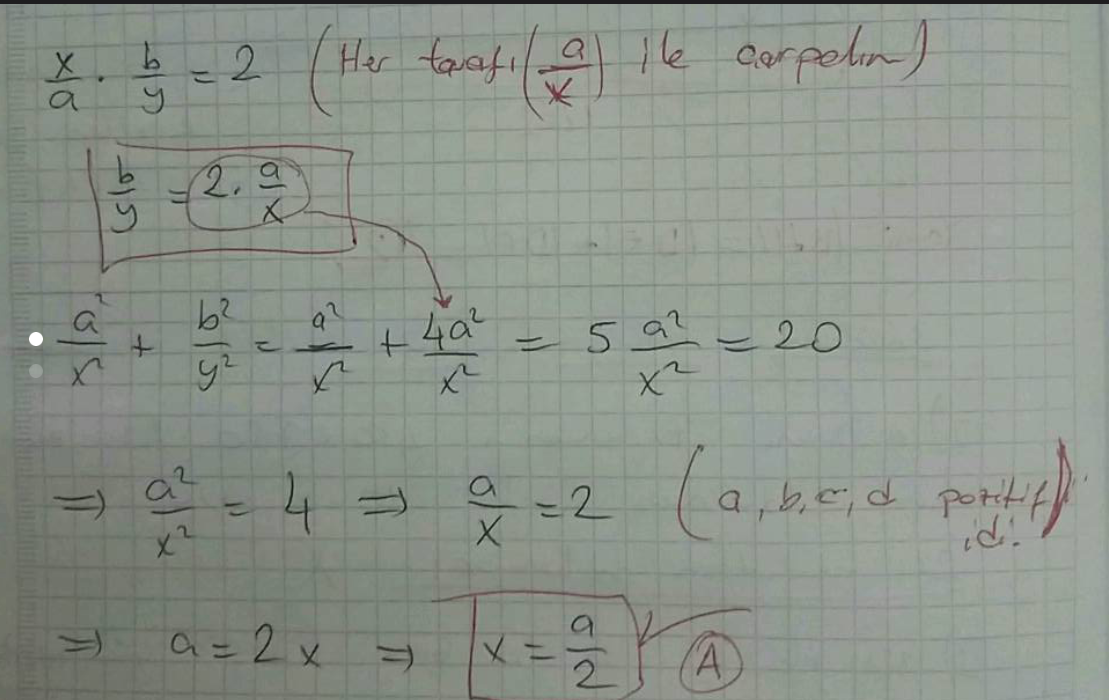 x/a · b/y = 2 (Her tarafı (a/x) ile çarpalım)
b/y = 2. a/x
a²/x² + b²/y² = a²/x² + 4a²/x² = 5 a²/x² = 20
⇒ a²/x² = 4 ⇒ a/x = 2 (a, b, c, d pozitif
idi.)
⇒ a = 2x ⇒ x = a/2 A